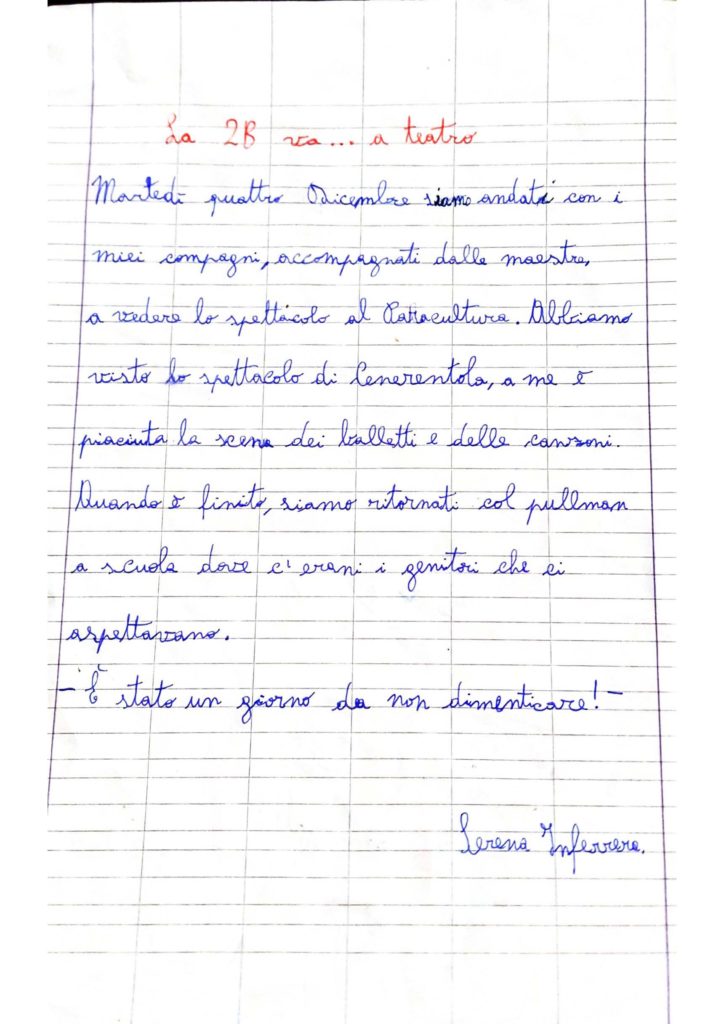 La 2B va... a teatro
Martedì quattro Dicembre siamo andati con i
miei compagni, accompagnati dalle maestre,
a vedere lo spettacolo al Palacultura. Abbiamo
visto lo spettacolo di Cenerentola, a me è
piaciuta la scena dei balletti e delle canzoni.
Quando è finito, siamo ritornati col pullman
a scuola dove c'erani i genitori che ci
aspettavano.
-È stato un giorno da non dimenticare!-
Serena Inferrera.